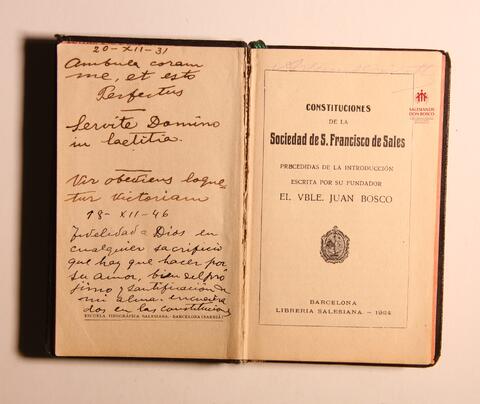 20-XII-31
Ambula coram
me, et esto
Perfectus
Servite Domino
in laetitia.
Vir obediens loque-
tur victoriam
18-XII-46
Fidelidad a Dios en
cualquier sacrificio
que hay que hacer por
su amor, bien del pró
jimo y santificación de
mi alma. encuadra
dos en las constituciones
ESCUELA TIPOGRÁFICA SALESIANA.-BARCELONA (SARRIÁ)
SALESIANOS
DON BOSCO
CONSTITUCIONES
DE LA
Sociedad de S. Francisco de Sales
PRECEDIDAS DE LA INTRODUCCIÓN
ESCRITA POR SU FUNDADOR
EL VBLE. JUAN BOSCO
BARCELONA
LIBRERIA SALESIANA. - 1924